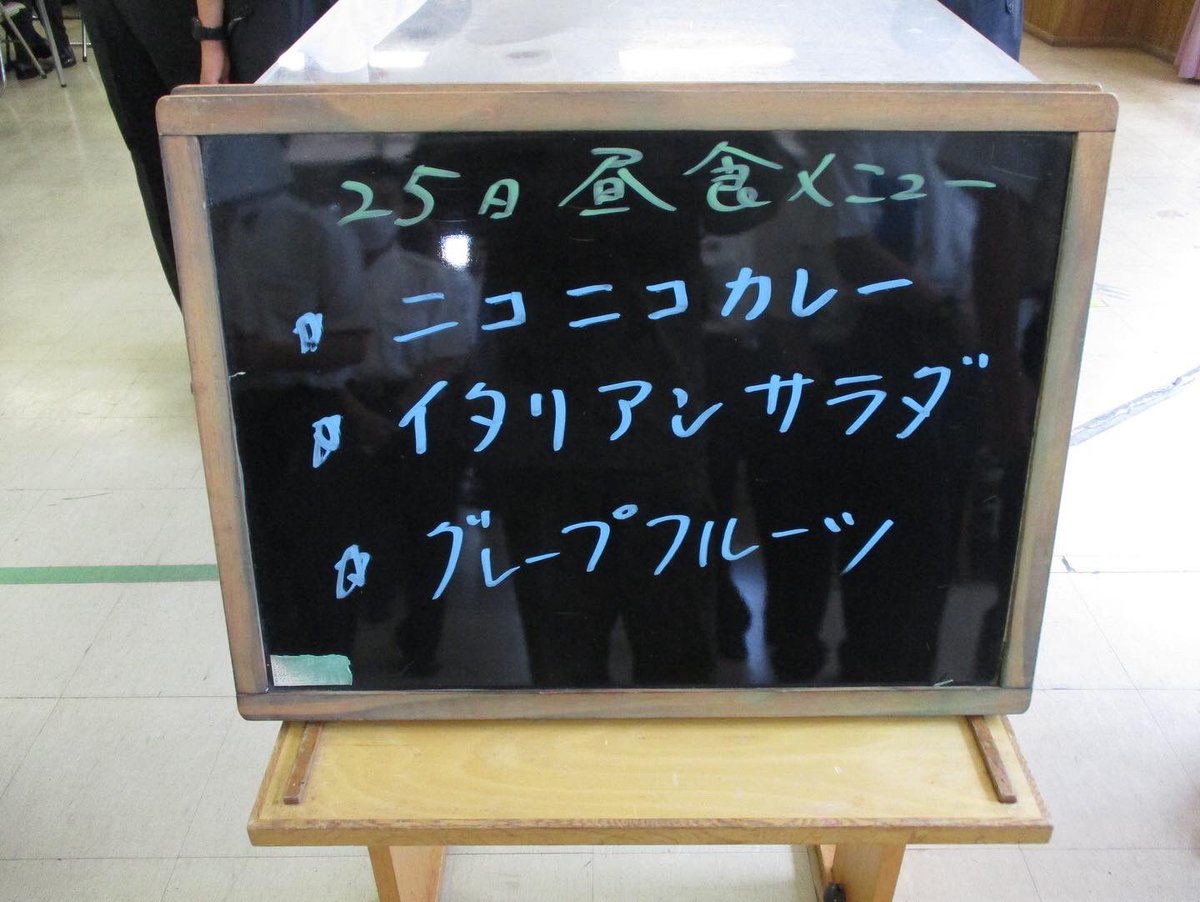 25日 昼食メニュー
ニコニコカレー
イタリアンサラダ
グレープフルーツ